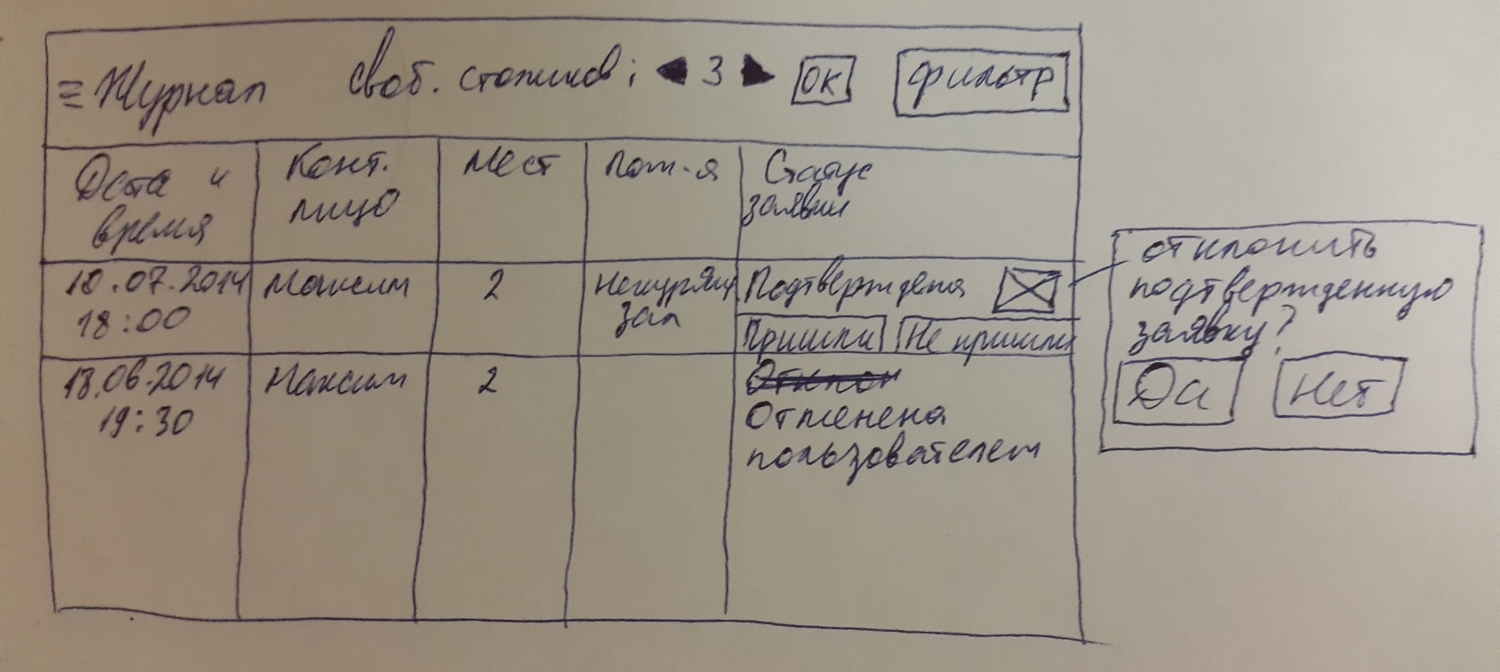 ≡ Журнал своб. столиков: ◀ 3 ▶ ОК Фильтр
Дата и время
Конт. лицо
Мест
Пож-я
Статус заявки
10.07.2014 18:00
Максим
2
Некурящ зал
Подтверждена
Пришли Не пришли
18.06.2014 19:30
Максим
2
Отклон
Отменена
пользователем
отклонить
подтвержденную
заявку?
Да Нет